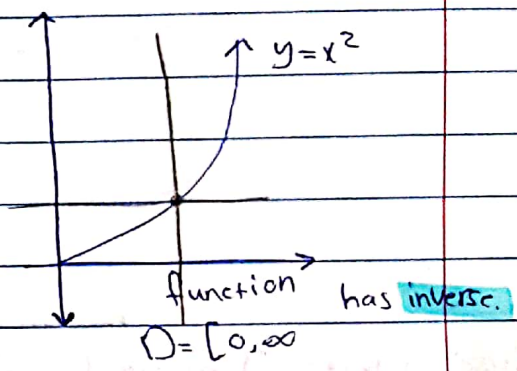 y=x²
function has inverse.
D=[0,∞